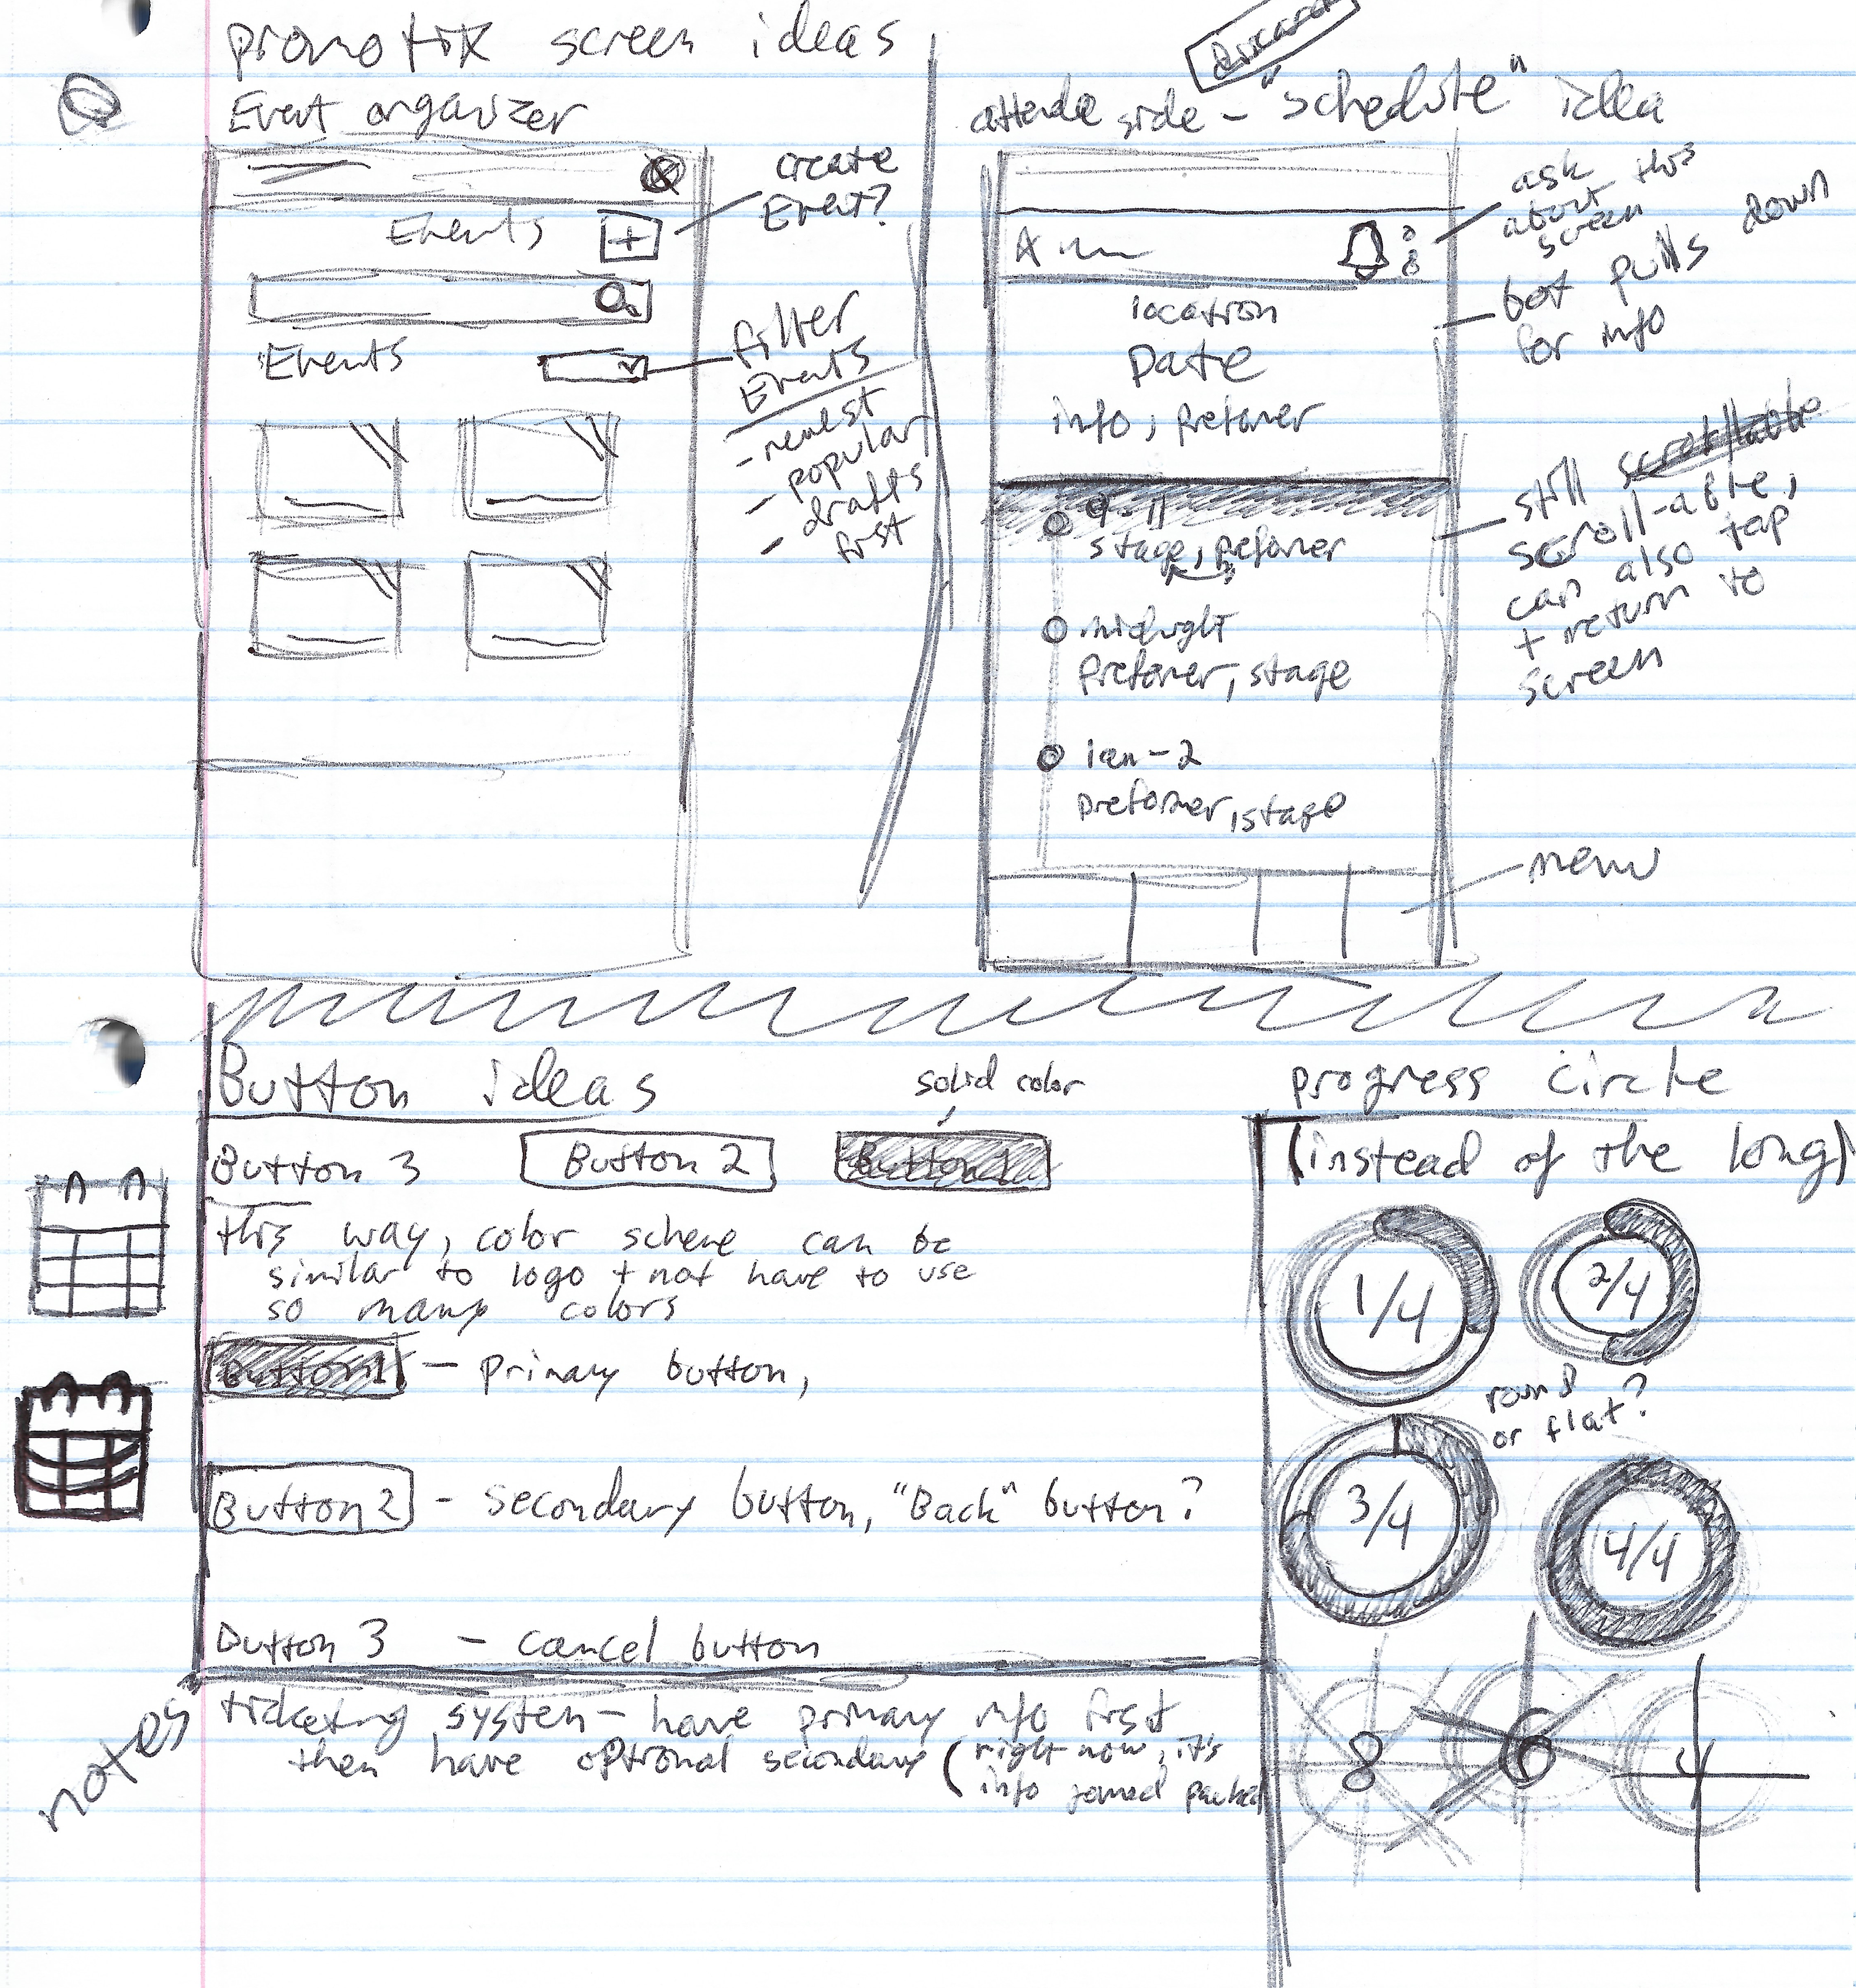 promotix screen ideas
Event organizer
Events
+
create
Event?
Events
filter
Events
- newest
- popular
- drafts
first
attende side - "schedule" idea
A
location
Date
info, prefomer
9-11
stage, prefomer
midnight
prefomer, stage
1am-2
preformer, stage
ask
about this
screen
box pulls down
for info
still
scroll-able,
can also tap
+ return to
screen
menu
Button ideas
solid color
Button 3
Button 2
Button 1
this way, color scheme can be
similar to logo + not have to use
so many colors
Button 1 - primary button,
Button 2 - secondary button, "Back" button?
Button 3 - cancel button
progress circle
(instead of the long)
1/4
2/4
round
or flat?
3/4
4/4
8
6
4
notes
ticketing system - have primary info first
then have optional secondary (right now, it's
info jamed packed